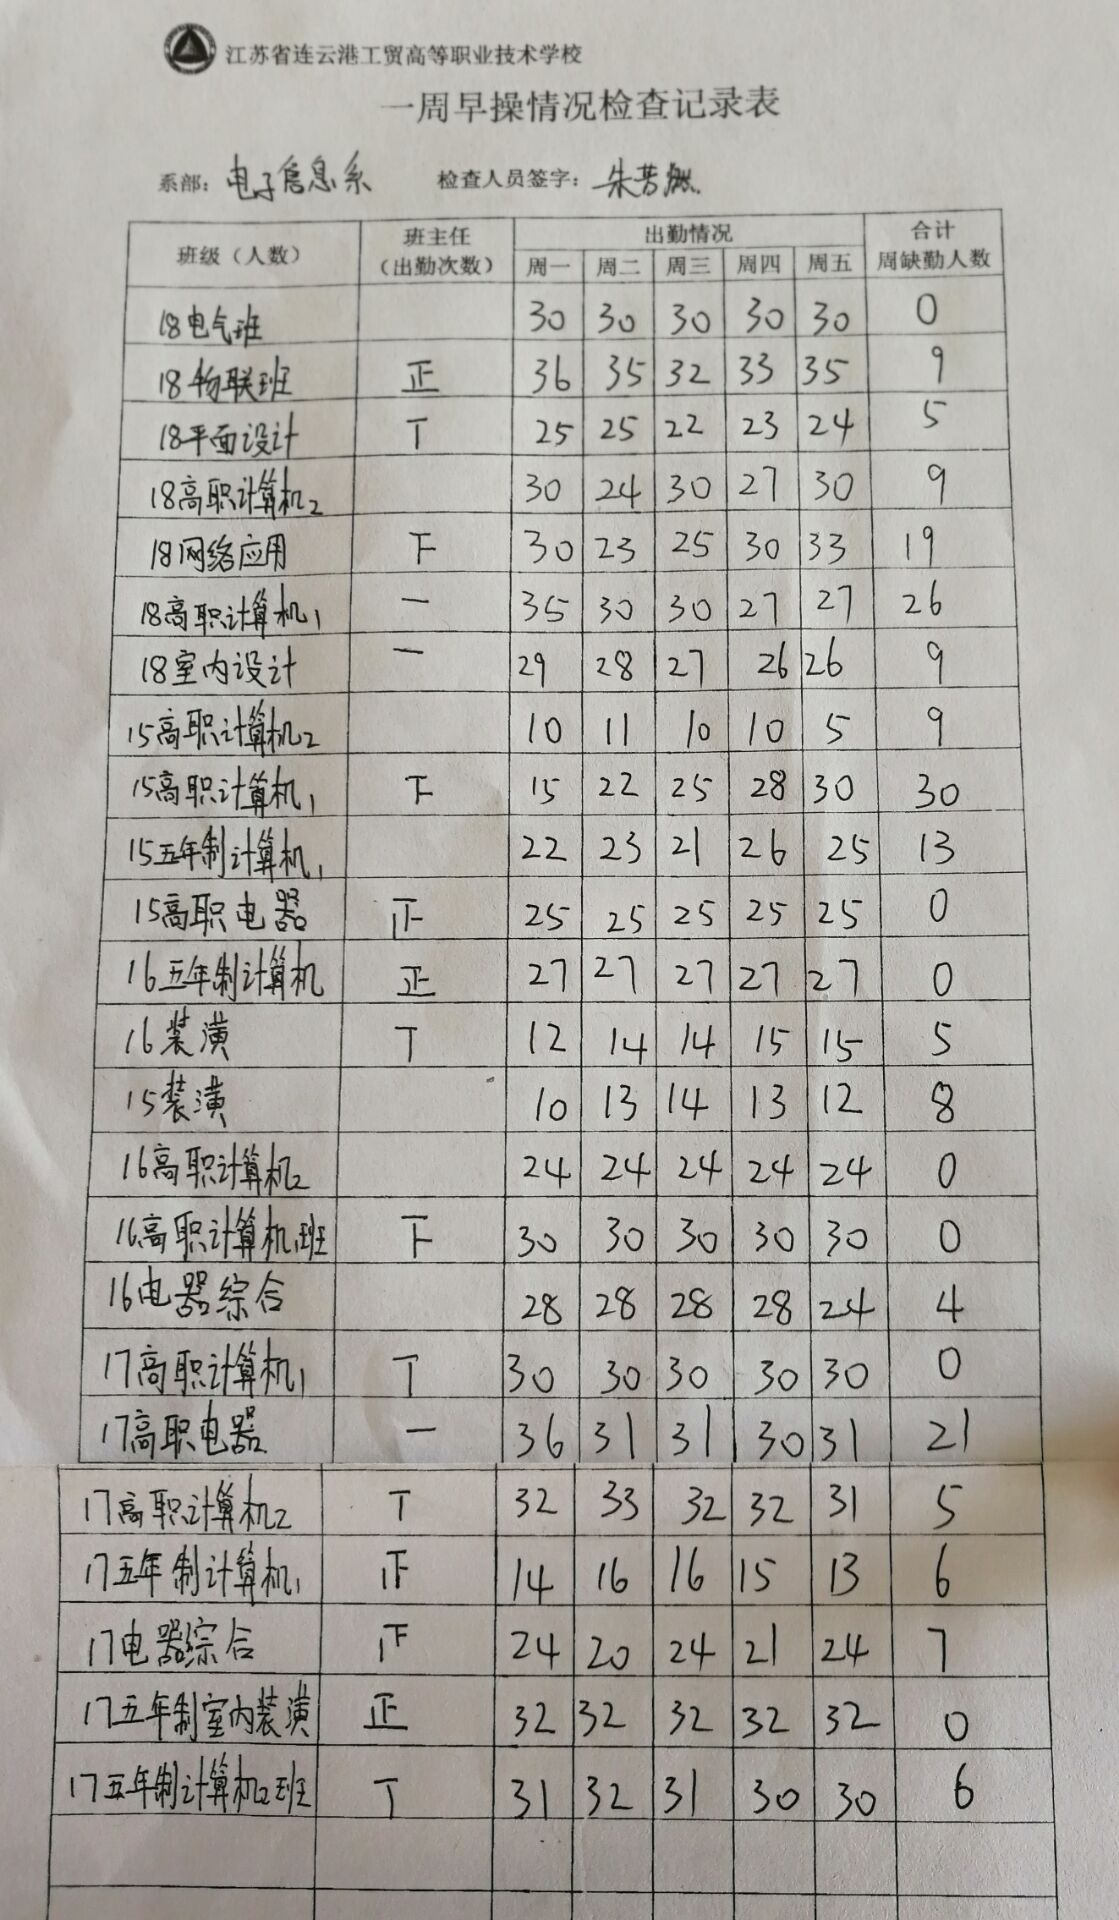 江苏省连云港工贸高等职业技术学校
一周早操情况检查记录表
系部：电子信息系 检查人员签字：朱芳燃
班级（人数） 班主任（出勤次数） 出勤情况 合计周缺勤人数
周一 周二 周三 周四 周五
18电气班 30 30 30 30 30 0
18物联班 正 36 35 32 33 35 9
18平面设计 丅 25 25 22 23 24 5
18高职计算机2 30 24 30 27 30 9
18网络应用 下 30 23 25 30 33 19
18高职计算机1 一 35 30 30 27 27 26
18室内设计 一 29 28 27 26 26 9
15高职计算机2 10 11 10 10 5 9
15高职计算机1 下 15 22 25 28 30 30
15五年制计算机1 22 23 21 26 25 13
15高职电器 正 25 25 25 25 25 0
16五年制计算机 正 27 27 27 27 27 0
16装潢 丅 12 14 14 15 15 5
15装潢 10 13 14 13 12 8
16高职计算机2 24 24 24 24 24 0
16高职计算机1班 下 30 30 30 30 30 0
16电器综合 28 28 28 28 24 4
17高职计算机1 丅 30 30 30 30 30 0
17高职电器 一 36 31 31 30 31 21
17高职计算机2 丅 32 33 32 32 31 5
17五年制计算机1 𤴓 14 16 16 15 13 6
17电器综合 𤴓 24 20 24 21 24 7
17五年制室内装潢 正 32 32 32 32 32 0
17五年制计算机2班 丅 31 32 31 30 30 6